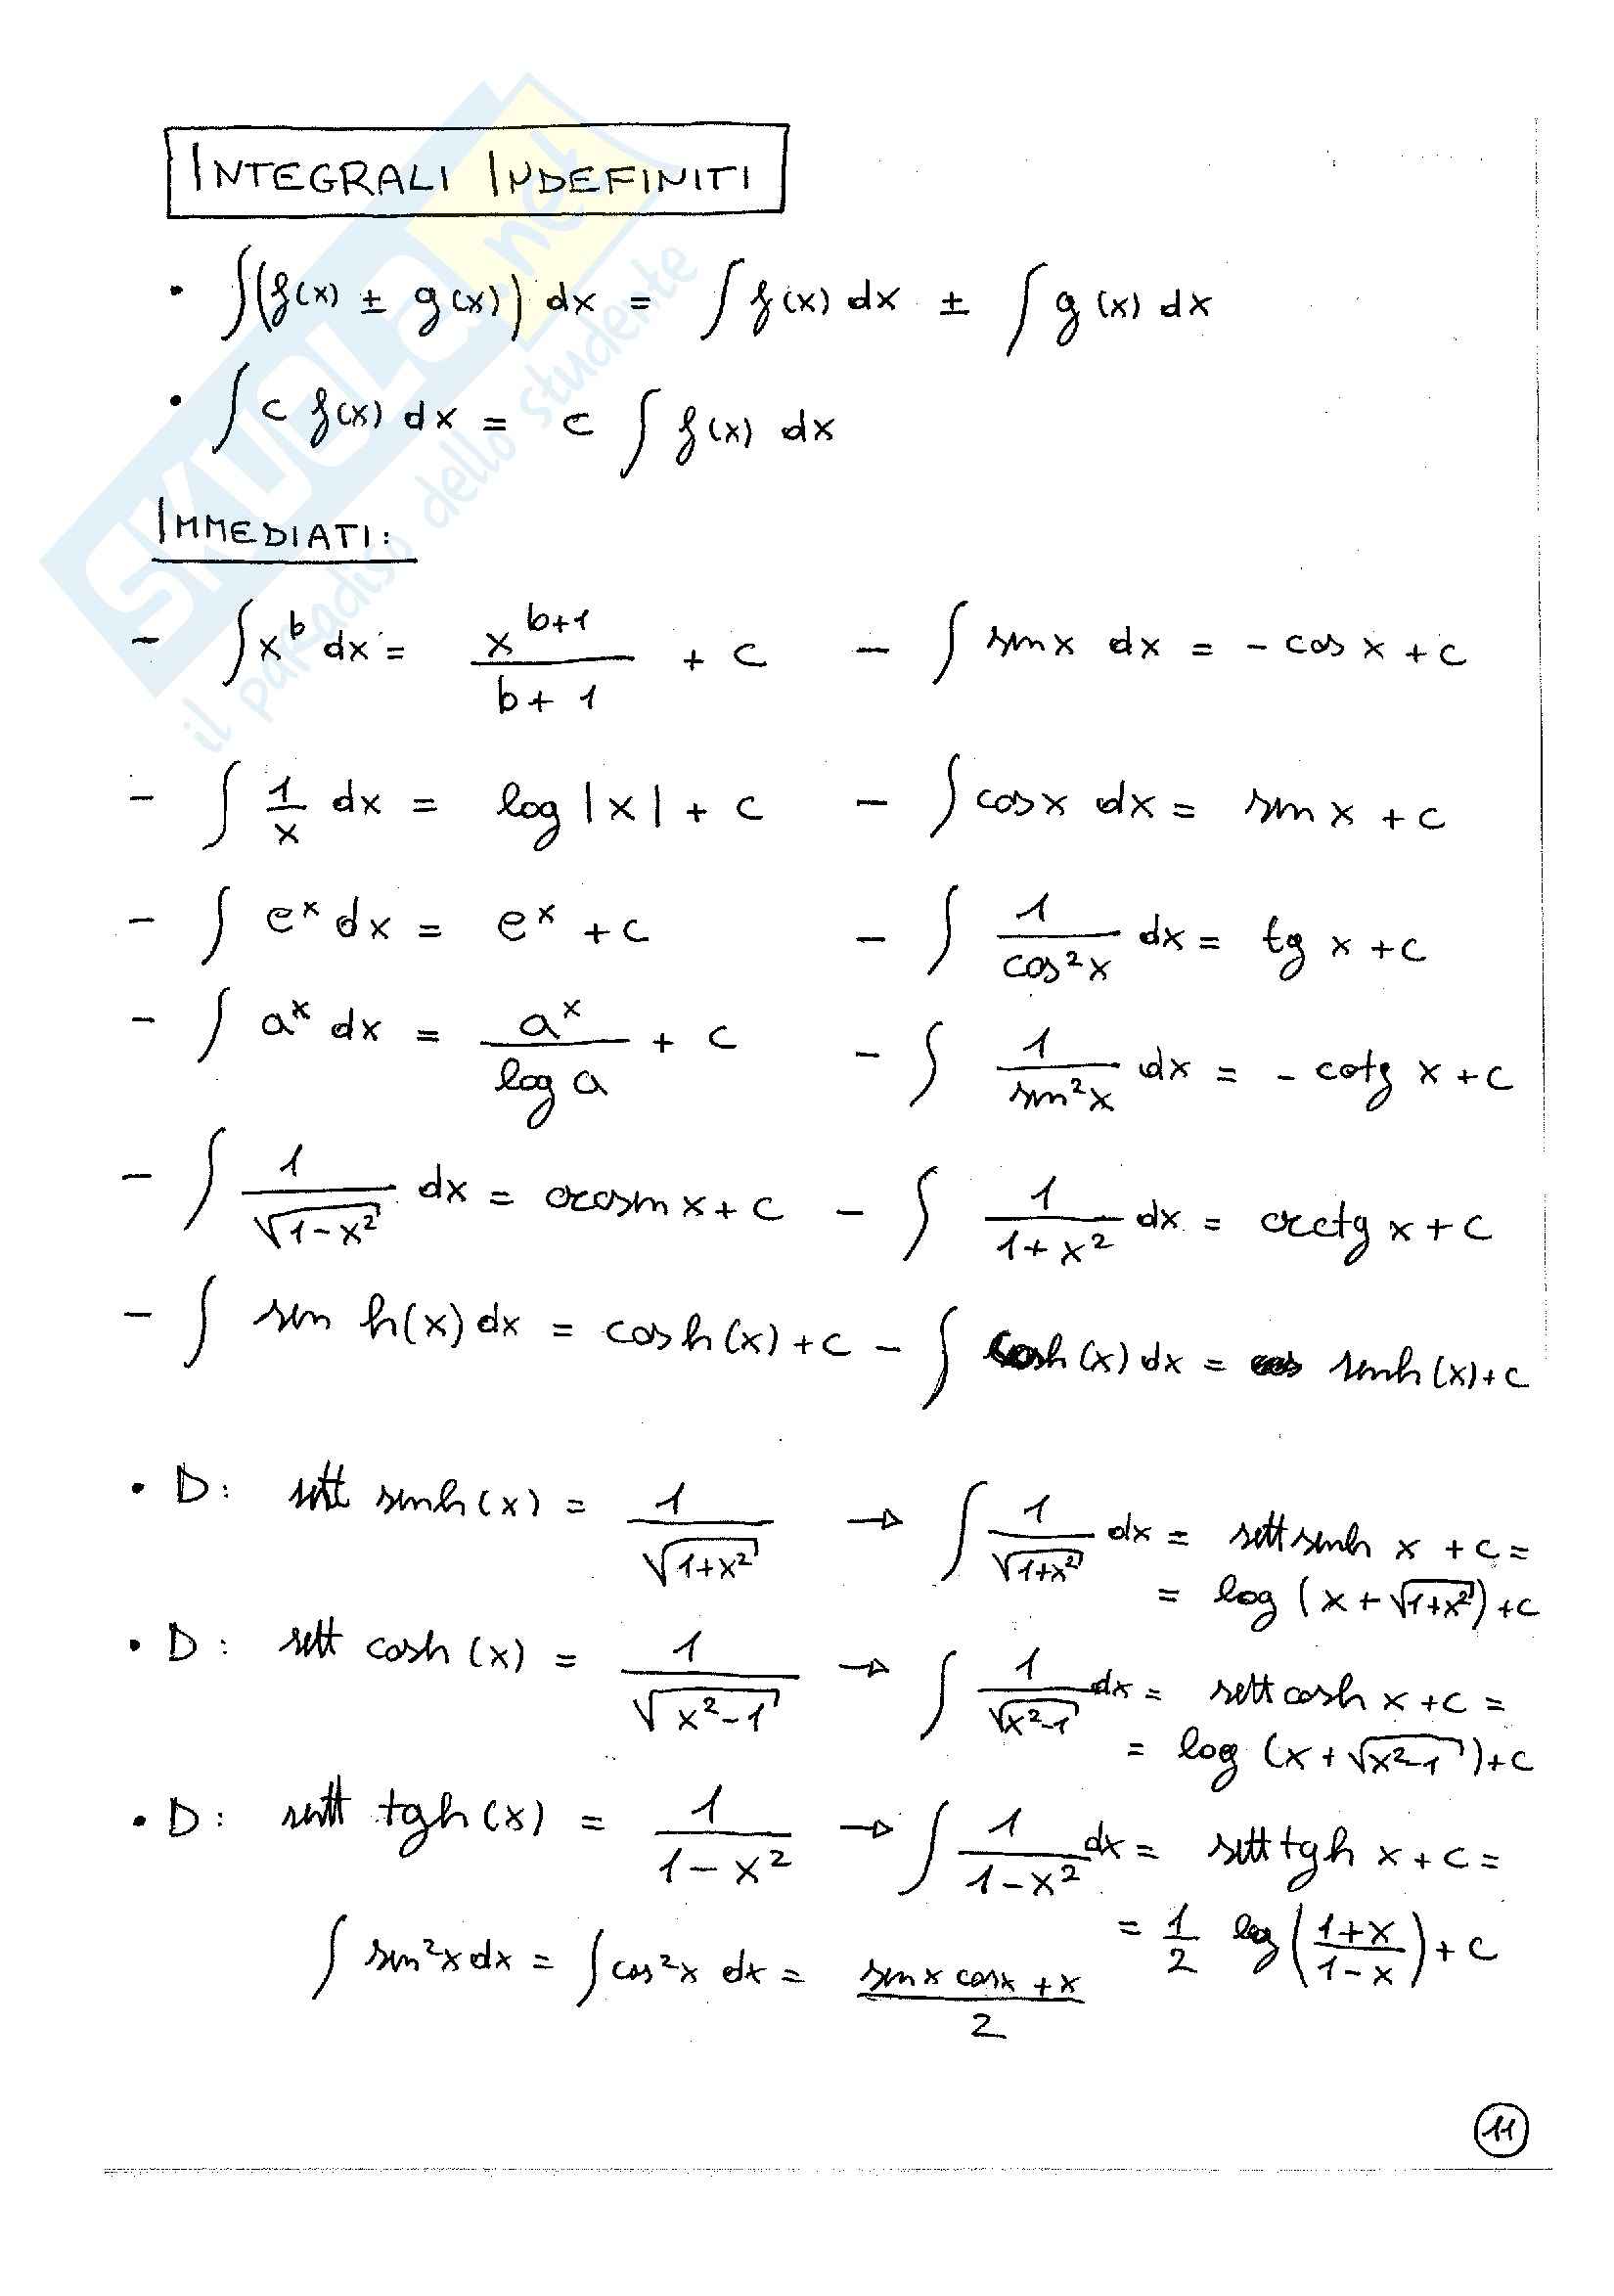 INTEGRALI INDEFINITI
• ∫(f(x) ± g(x)) dx = ∫ f(x) dx ± ∫ g(x) dx
• ∫ c f(x) dx = c ∫ f(x) dx
IMMEDIATI:
- ∫ x^b dx = x^(b+1)/(b+1) + c - ∫ sin x dx = - cos x + c
- ∫ 1/x dx = log |x| + c - ∫ cos x dx = sin x + c
- ∫ e^x dx = e^x + c - ∫ 1/cos²x dx = tg x + c
- ∫ a^x dx = a^x/log a + c - ∫ 1/sin²x dx = - cotg x + c
- ∫ 1/√(1-x²) dx = arcsin x + c - ∫ 1/(1+x²) dx = arctg x + c
- ∫ sen h(x) dx = cosh(x) + c - ∫ cosh(x) dx = senh(x) + c
• D: sett senh(x) = 1/√(1+x²) → ∫ 1/√(1+x²) dx = settsenh x + c =
= log (x + √(1+x²)) + c
• D: sett cosh(x) = 1/√(x²-1) → ∫ 1/√(x²-1) dx = settcosh x + c =
= log (x + √(x²-1)) + c
• D: sett tgh(x) = 1/(1-x²) → ∫ 1/(1-x²) dx = setttgh x + c =
= 1/2 log((1+x)/(1-x)) + c
∫ sin²x dx = ∫ cos²x dx = (sin x cos x + x)/2
11
SKUOLA.net
il paradiso dello studente